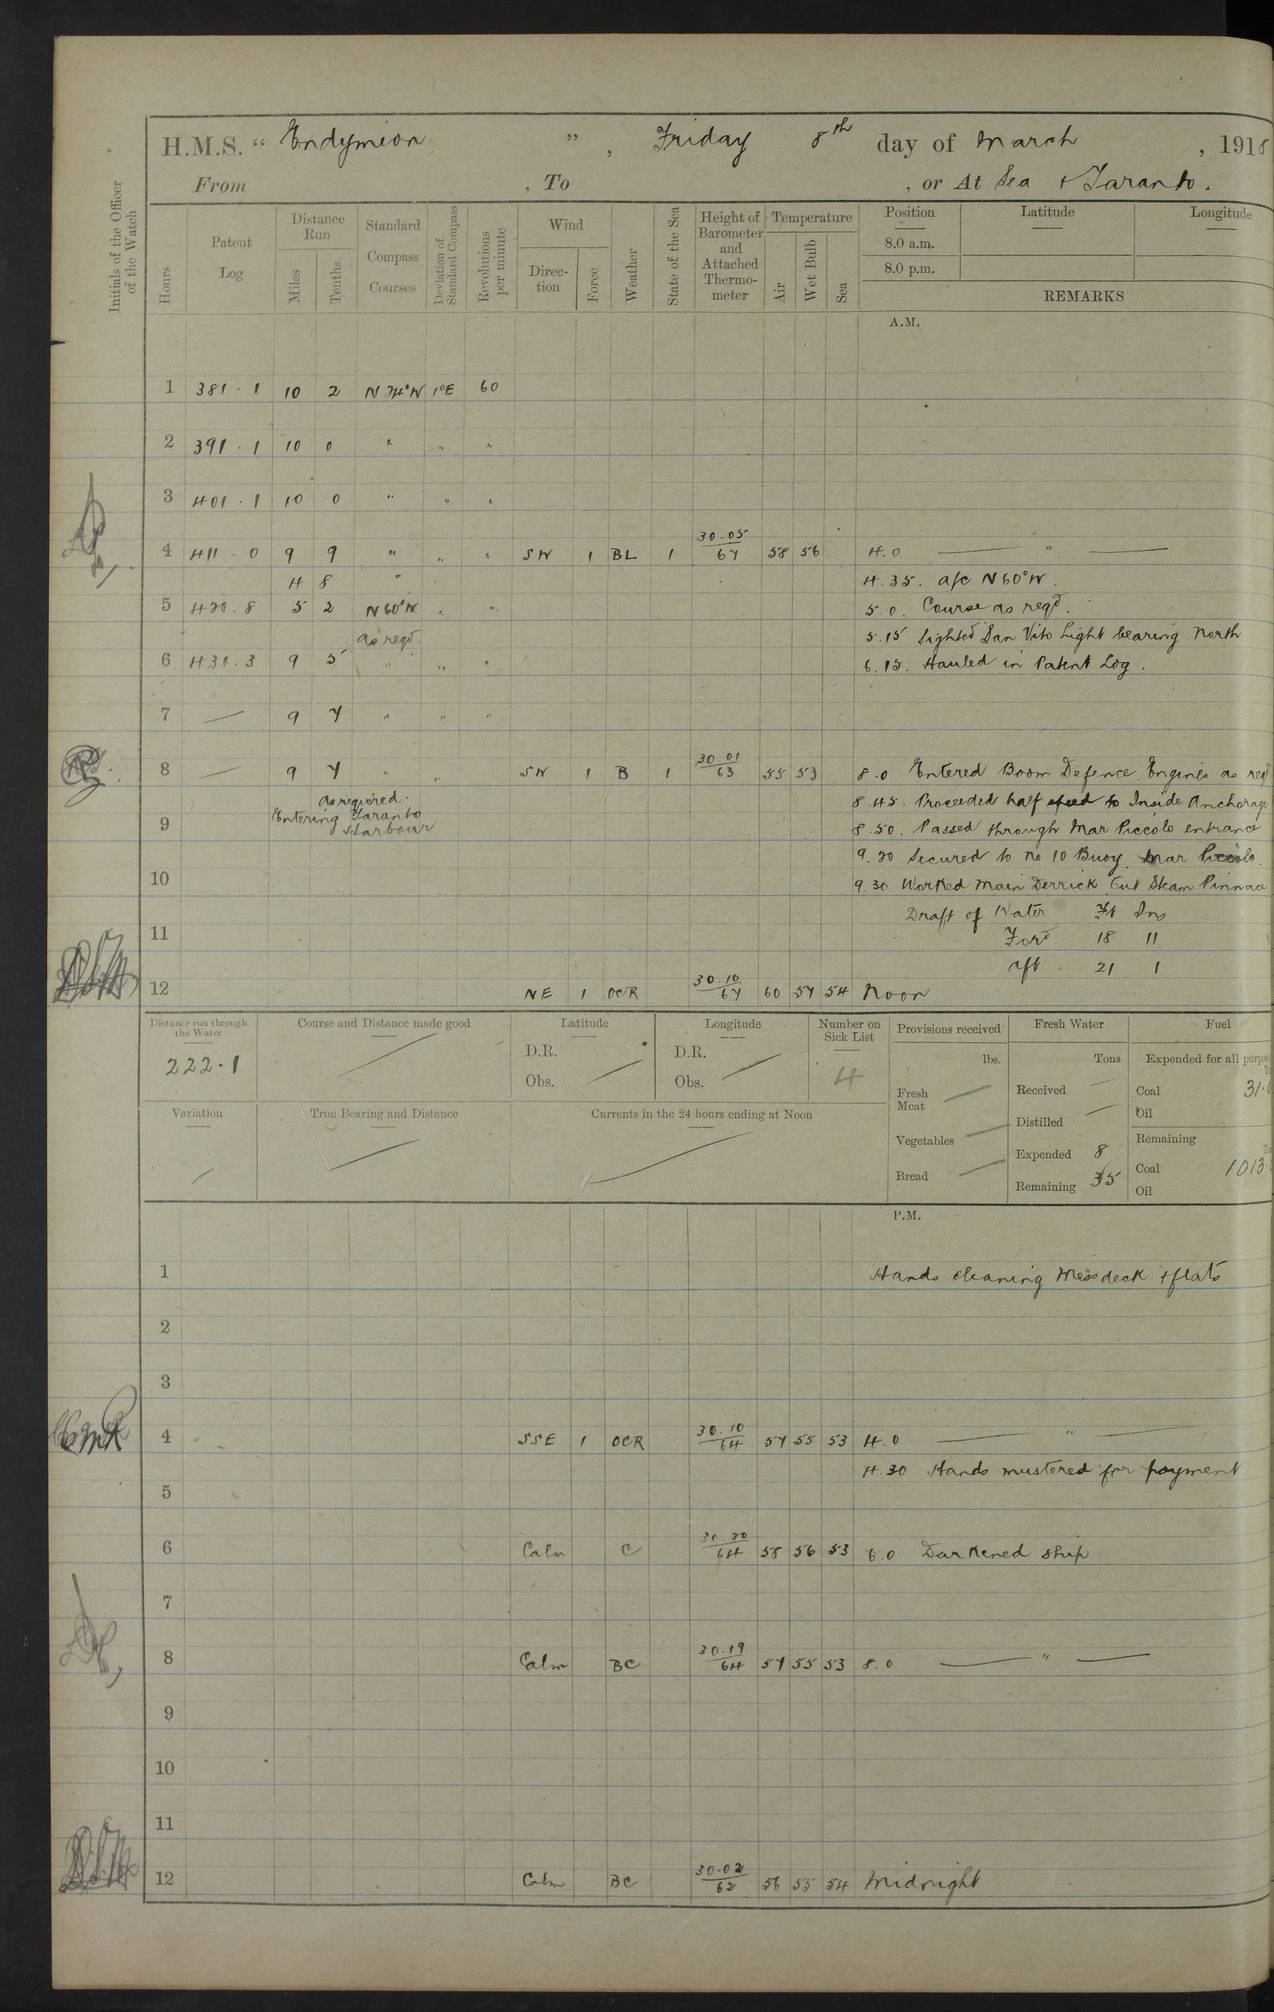 H.M.S. " Endymion ", Friday 8th day of March, 1918
From , To , or At Sea & Taranto.
Initials of the Officer of the Watch
Hours
Patent Log
Distance Run
Miles
Tenths
Standard Compass Courses
Deviation of Standard Compass
Revolutions per minute
Wind
Direc-tion
Force
Weather
State of the Sea
Height of Barometer and Attached Thermo-meter
Temperature
Air
Wet Bulb
Sea
Position
8.0 a.m.
8.0 p.m.
Latitude
Longitude
REMARKS
A.M.
1 381.1 10 2 N 74°W 1°E 60
2 391.1 10 0 " " "
3 401.1 10 0 " " "
4 411.0 9 9 " " " SW 1 BL 1 30.05/67 58 56 4.0 — " —
4 8 " 4.35. a/c N60°W.
5 420.8 5 2 N60°W " " 5.0. Course as reqd.
as reqd. 5.15 Sighted San Vito Light bearing North
6 430.3 9 5 " " " 6.15. Hauled in Patent Log.
7 — 9 7 " " "
8 — 9 7 " " SW 1 B 1 30.01/63 55 53 8.0 Entered Boom Defence. Engines as reqd
as required. 8.45. Proceeded half speed to Inside Anchorage
9 Entering Taranto Harbour 8.50. Passed through Mar Piccolo entrance
9.20 Secured to No 10 Buoy. Mar Piccolo.
10 9.30 Worked Main Derrick. Out Steam Pinnace
Draft of Water Ft Ins
11 Ford 18 11
Aft 21 1
12 NE 1 OCR 30.10/67 60 57 54 Noon
Distance run through the Water
222.1
Course and Distance made good
Latitude
D.R.
Obs.
Longitude
D.R.
Obs.
Number on Sick List
4
Provisions received
lbs.
Fresh Meat —
Vegetables —
Bread —
Fresh Water
Tons
Received —
Distilled —
Expended 8
Remaining 35
Fuel
Expended for all purpose
Coal 31.
Oil
Remaining
Coal 1013.
Oil
Variation
True Bearing and Distance
Currents in the 24 hours ending at Noon
P.M.
1 Hands cleaning Messdeck & flats
2
3
4 SSE 1 OCR 30.10/64 57 55 53 4.0 — " —
4.30 Hands mustered for payment
5
6 Calm C 30.20/64 58 56 53 6.0 Darkened ship
7
8 Calm BC 30.19/64 57 55 53 8.0 — " —
9
10
11
12 Calm BC 30.02/62 56 55 54 Midnight